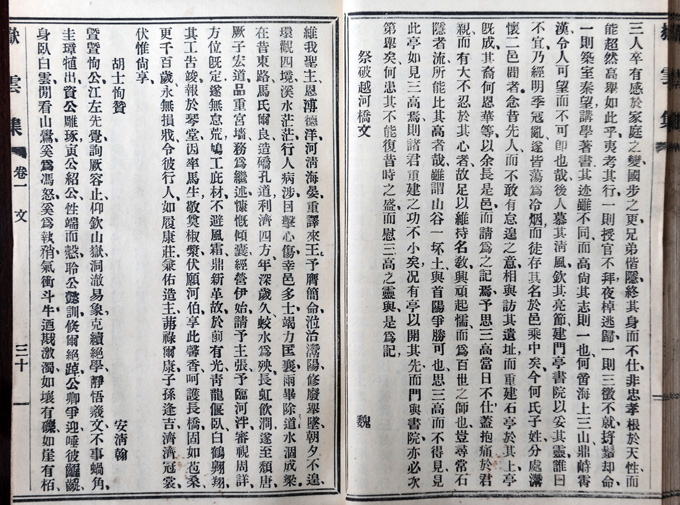 嶽雲集
三人卒有感於家庭之變國步之更兄弟偕隱終其身而不仕非忠孝根於天性而
能超然高舉如此乎夷考其行一則授官不拜夜棹逃歸一則三徵不就捋鬚却命
一則築室秦望講學著書其迹雖不同而高尙其志則一也何啻海上三山鼎峙霄
漢令人可望而不可卽也哉後人慕其淸風欽其亮節建門亭書院以妥其靈誰曰
不宜乃經明季寇亂遂皆蕩爲冷烟而徒存其名於邑乘中矣今何氏子姓分處
懷二邑間者念昔先人而不敢有怠遑之意相與訪其遺址而重建石亭於其上亭
旣成其裔何恩華等以余長是邑而請爲之記焉予思三高當日不仕蓋抱痛於君
親而有大不忍於其心者故足以維持名敎與頑起懦而爲百世之師也豈尋常石
隱者流所能比其高者哉雖謂山谷一坏土與首陽爭勝可也思三高而不得見見
此亭如見三高焉則諸君重建之功不小矣况有亭以開其先而門與書院亦必次
第舉矣何患其不能復昔時之盛而慰三高之靈與是爲記
祭破越河橋文 魏
維我聖主恩溥德洋河淸海晏重譯來王予膺簡命涖治陽修廢舉墜朝夕不遑
環觀四境溪水茫茫行人病涉目擊心傷幸邑多士竭力匡襄雨畢除道水涸成梁
在昔東路馬氏爾良造礄孔道利濟四方年深歲久蛟水爲殃長虹飲澗遂至頹唐
厥子宏道品重宮墻務爲繼述慷慨傾囊經營伊始請予主張予臨河泮審視周詳
方位旣定遂無怠荒鳩工庇材不避風霜鼎新革故於前有光靑龍偃臥白鶴翱翔
其工吿竣報於琴堂因率馬生敬奠椒漿伏願河伯享此馨香呵護長橋固如苞桑
更千百歲永無損戕令彼行人如履康莊兼佑造主茀祿爾康子孫逢吉濟濟冠裳
伏惟尙享
胡士恂贊 安濟翰
曁曁恂公江左先覺詢厥容止仰欽山嶽洞澈易象克續絕學靜悟羲文不事蝸角
圭璋植出資公雕琢寅公紹公性端而慤聆公懿訓修爾絕踔公卿爭迎唾彼齷齪
身臥白雲閒看山鷽奚爲馮怒奚爲執矟氣衝斗牛遁戢激濁如壤有磯如崖有栢
嶽雲集 卷一 文 三十